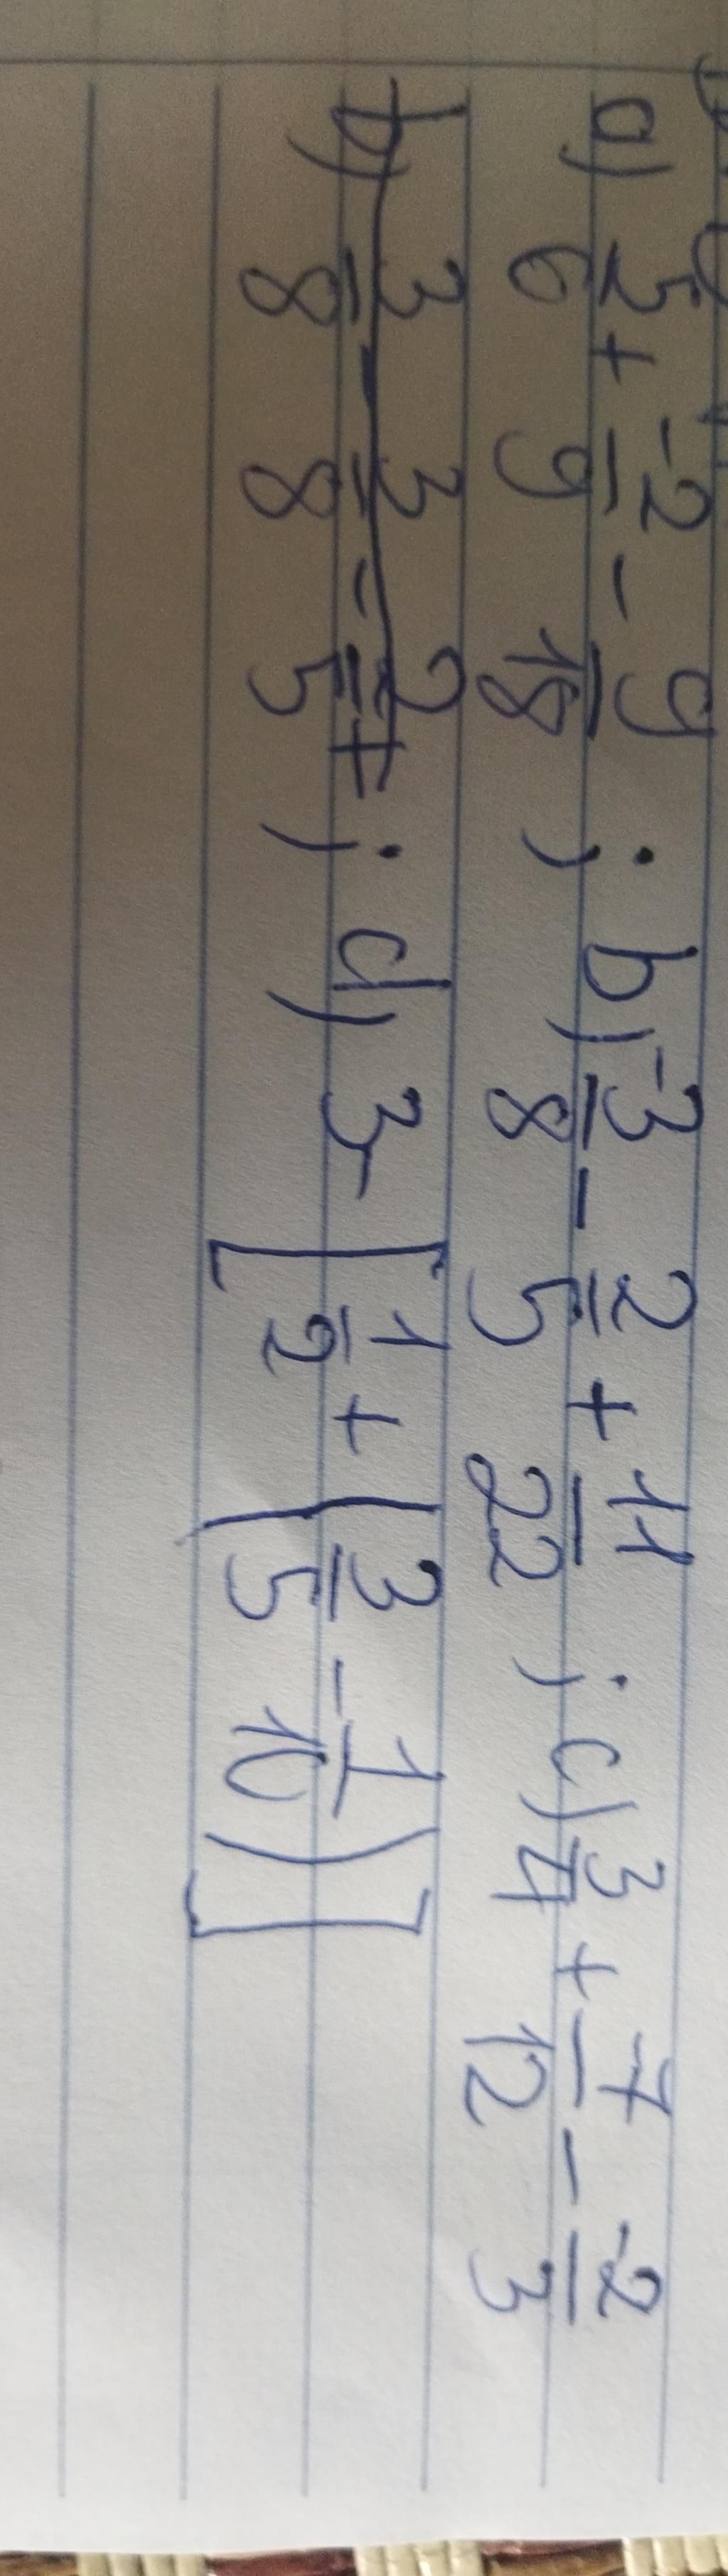 a) 5/6 + -2/9 - 9/18 ; b) -3/8 - 2/5 + 11/22 ; c) 3/4 + -7/12 - -2/3
b) 3/8 - 3/8 - 2/5 + ; d) 3 - [1/2 + (3/5 - 1/10)]